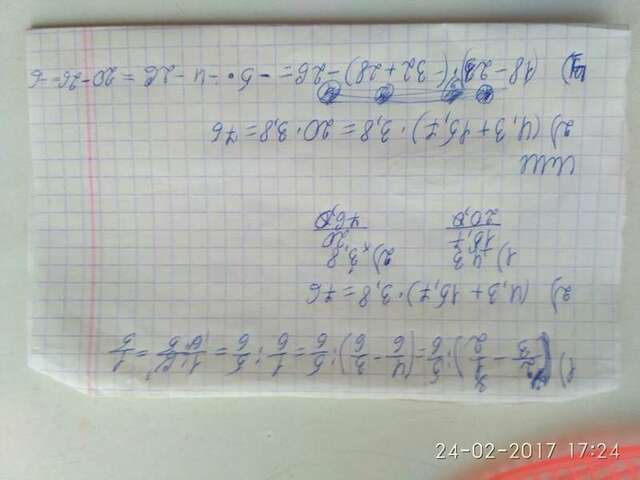 1) (2/3 - 1/2) : 5/6 = (4/6 - 3/6) : 5/6 = 1/6 : 5/6 = 1·6/6·5 = 1/5
2) (4,3 + 15,7) · 3,8 = 76
1) 4,3 2) 3,8
15,7 20
20,0 76,0
или
2) (4,3 + 15,7) · 3,8 = 20 · 3,8 = 76
(18 - 23) · (- 32 + 28) - 26 = - 5 · - 4 - 26 = 20 - 26 = -6
24-02-2017 17:24